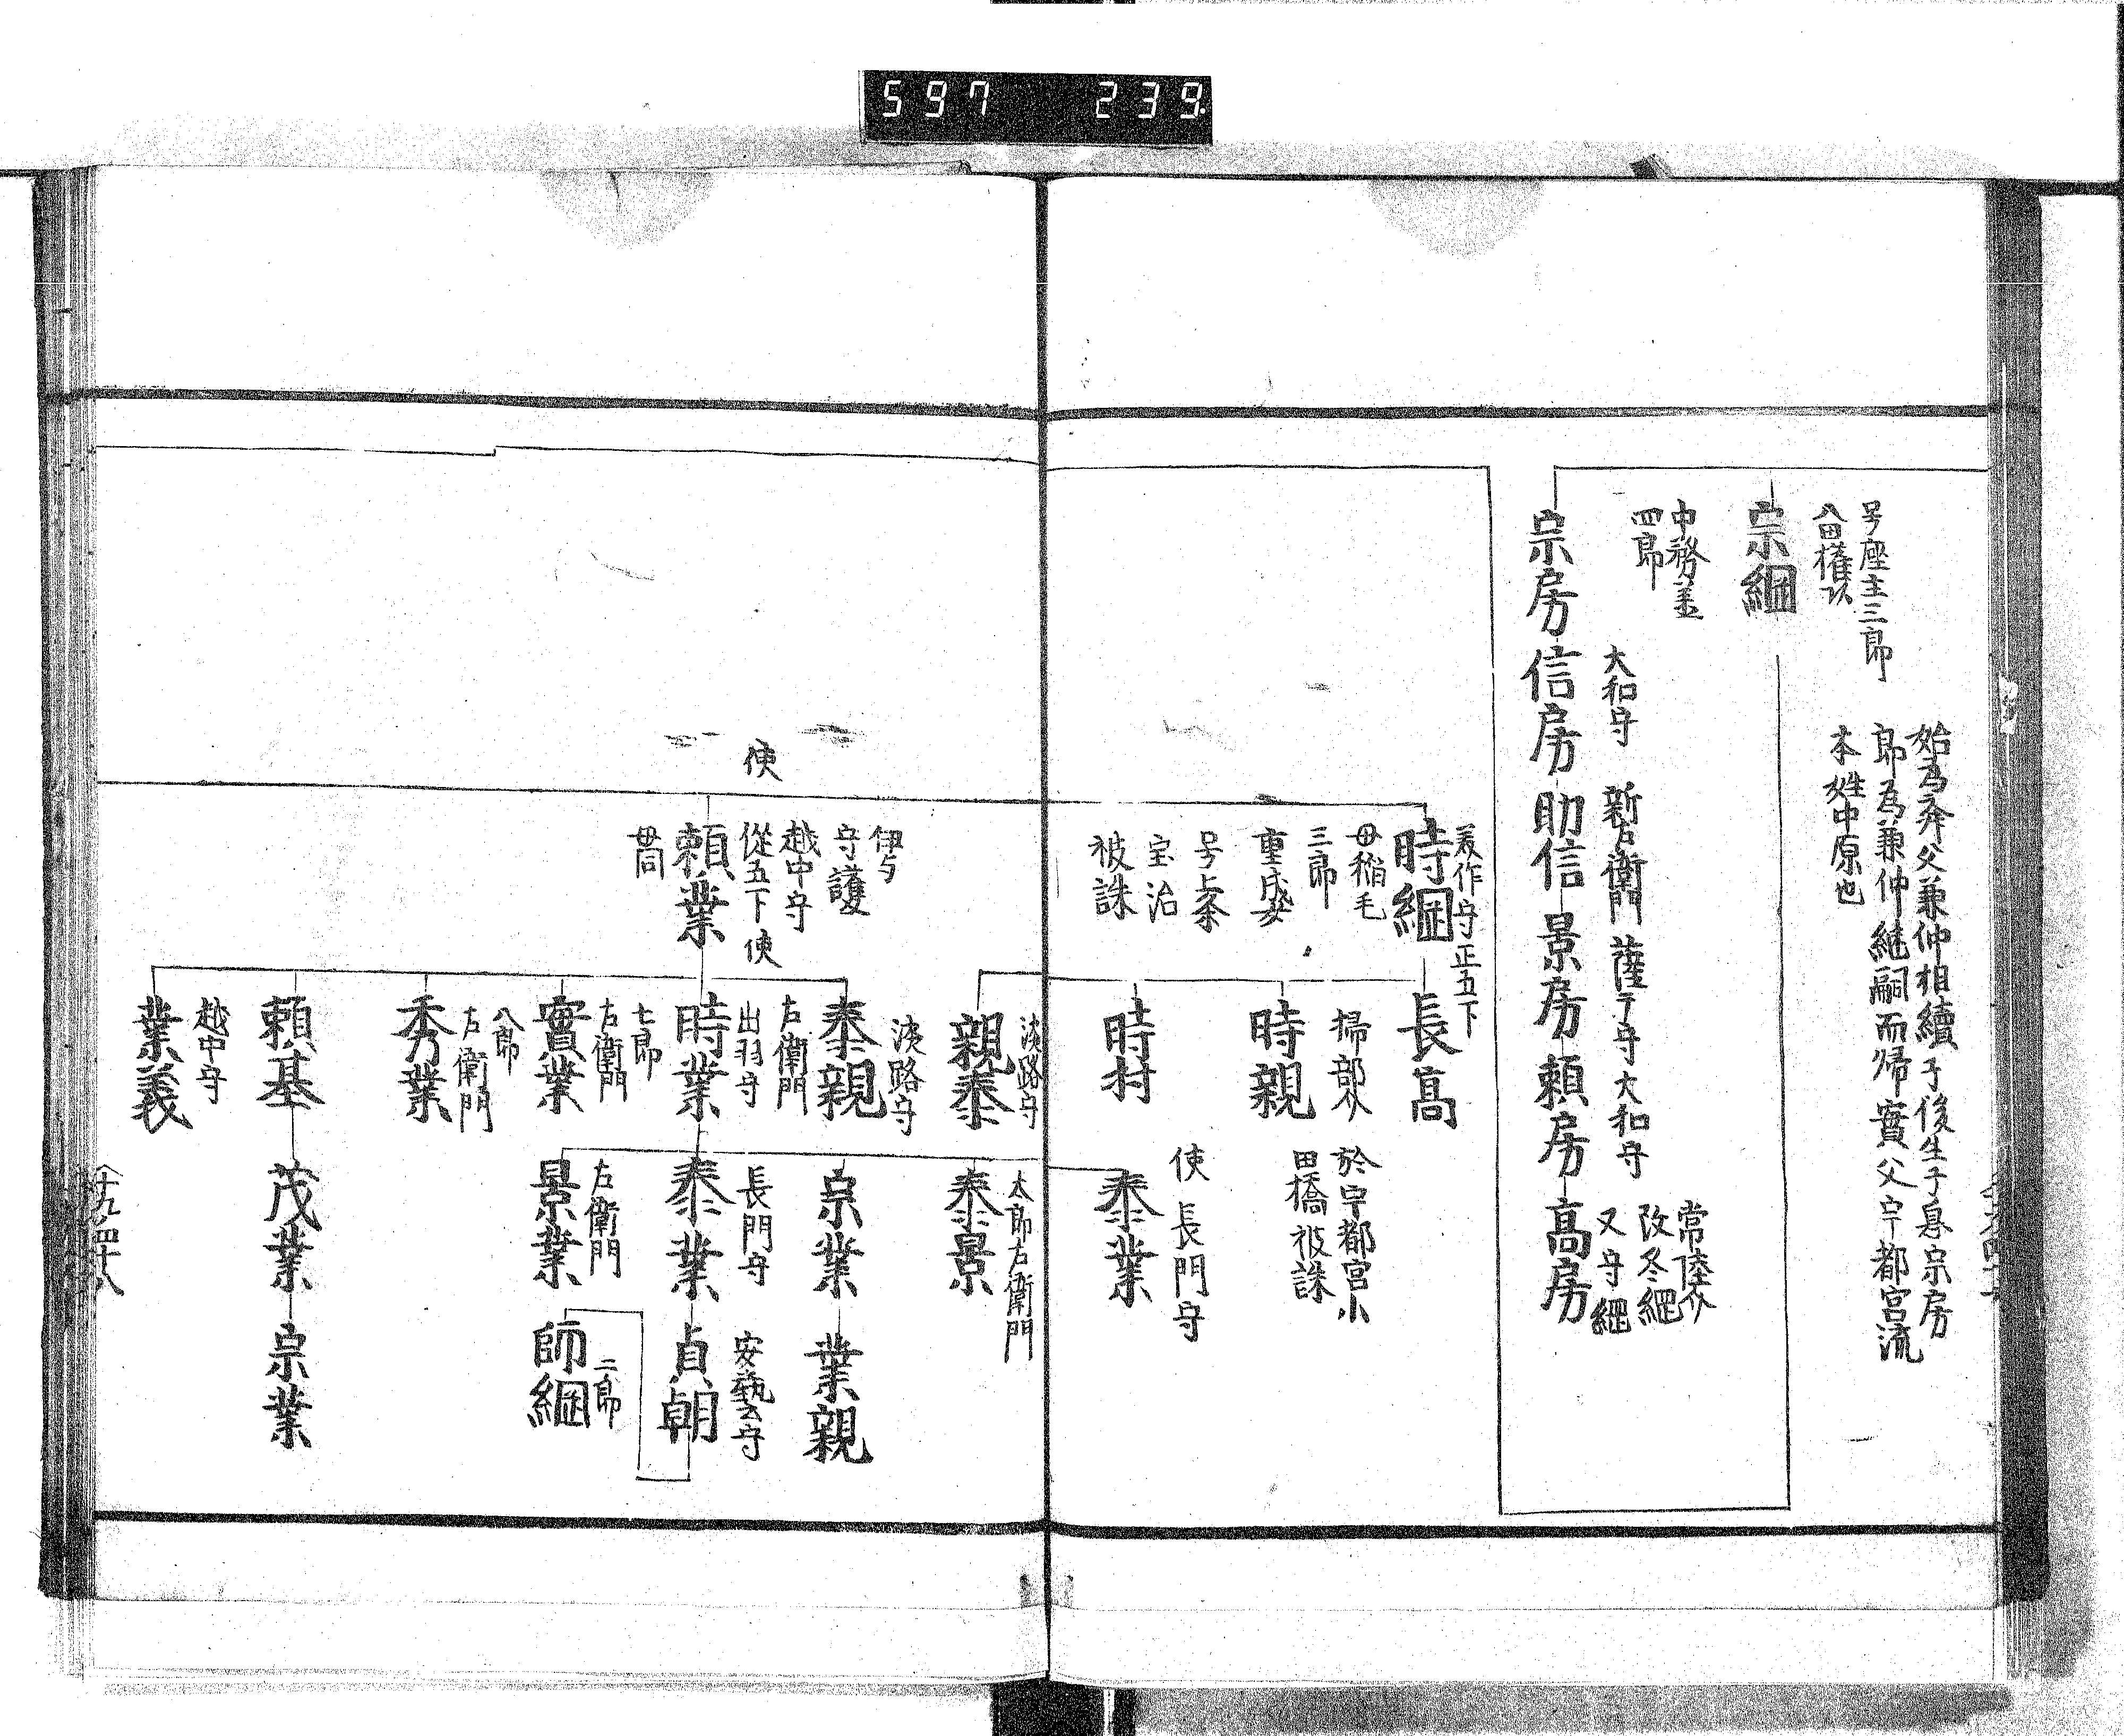 597 239
号座主三郎
八田権
始為舜父兼仲相續子後生子息宗房
郎為兼仲継嗣而帰實父宇都宮流
本姓中原也
宗綱
中務丞
四郎
宗房
大和守
信房
新左衛門
助信
薩广守
景房
大和守
頼房
常陸介
改冬綱
又守綱
高房
美作守正五下
時綱
母稲毛
三郎
重成女
号上条
宝治
被誅
長高
掃部介
於宇都宮小
田橋被誅
時親
時村
使 長門守
泰業
淡路守
親泰
太郎左衛門
泰景
使
伊与
守護
越中守
從五下使
頼業
母同
淡路守
泰親
宗業
業親
左衛門
出羽守
時業
長門守
泰業
安藝守
貞朝
七郎
左衛門
實業
左衛門
景業
二郎
師綱
八郎
左衛門
秀業
頼基
茂業
宗業
越中守
業義
十九ノ四十八